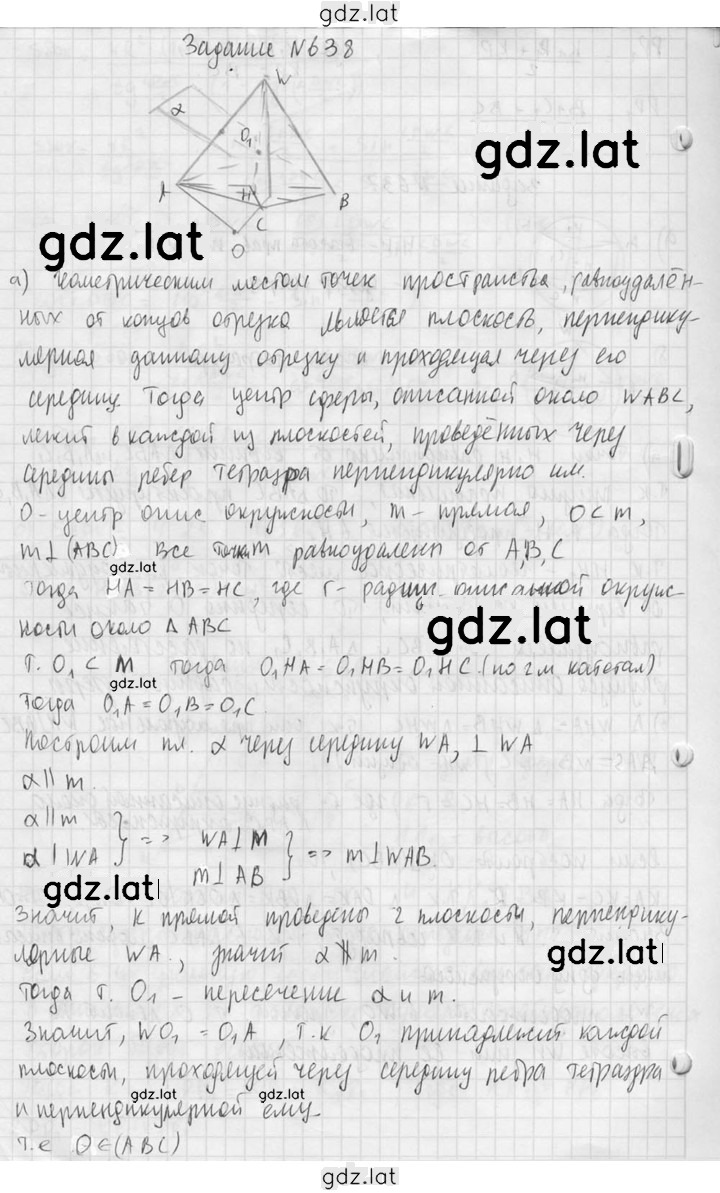 gdz.lat
Задание №638
W
α
O₁
gdz.lat
A
H
B
C
gdz.lat
O
а) Геометрическим местом точек пространства, равноудалён-
ных от концов отрезка является плоскость, перпендику-
лярная данному отрезку и проходящая через его
середину. Тогда центр сферы, описанной около WABC,
лежит в каждой из плоскостей, проведённых через
середины ребер тетраэдра перпендикулярно им.
O - центр опис окружности, m - прямая, O⊂m,
m⊥(ABC) Все точки m равноудалены от A,B,C
gdz.lat
Тогда HA = HB = HC, где r - радиус описанной окруж-
ности около ΔABC
gdz.lat
Т. O₁ ⊂ M тогда O₁HA = O₁HB = O₁HC (по 2м катетам)
gdz.lat
Тогда O₁A = O₁B = O₁C
Построим пл. α через середину WA, ⊥ WA
α∥m.
α∥m
α⊥WA } => WA⊥M
m⊥AB } => m⊥WAB.
gdz.lat
Значит, к прямой проведены 2 плоскости, перпендику-
лярные WA, значит α∦m.
gdz.lat
Тогда т. O₁ - пересечение α и m.
Значит, WO₁ = O₁A, т.к O₁ принадлежит каждой
плоскости, проходящей через середину ребра тетраэдра
gdz.lat
и перпендикулярной ему.
т.е O∈(ABC)
gdz.lat